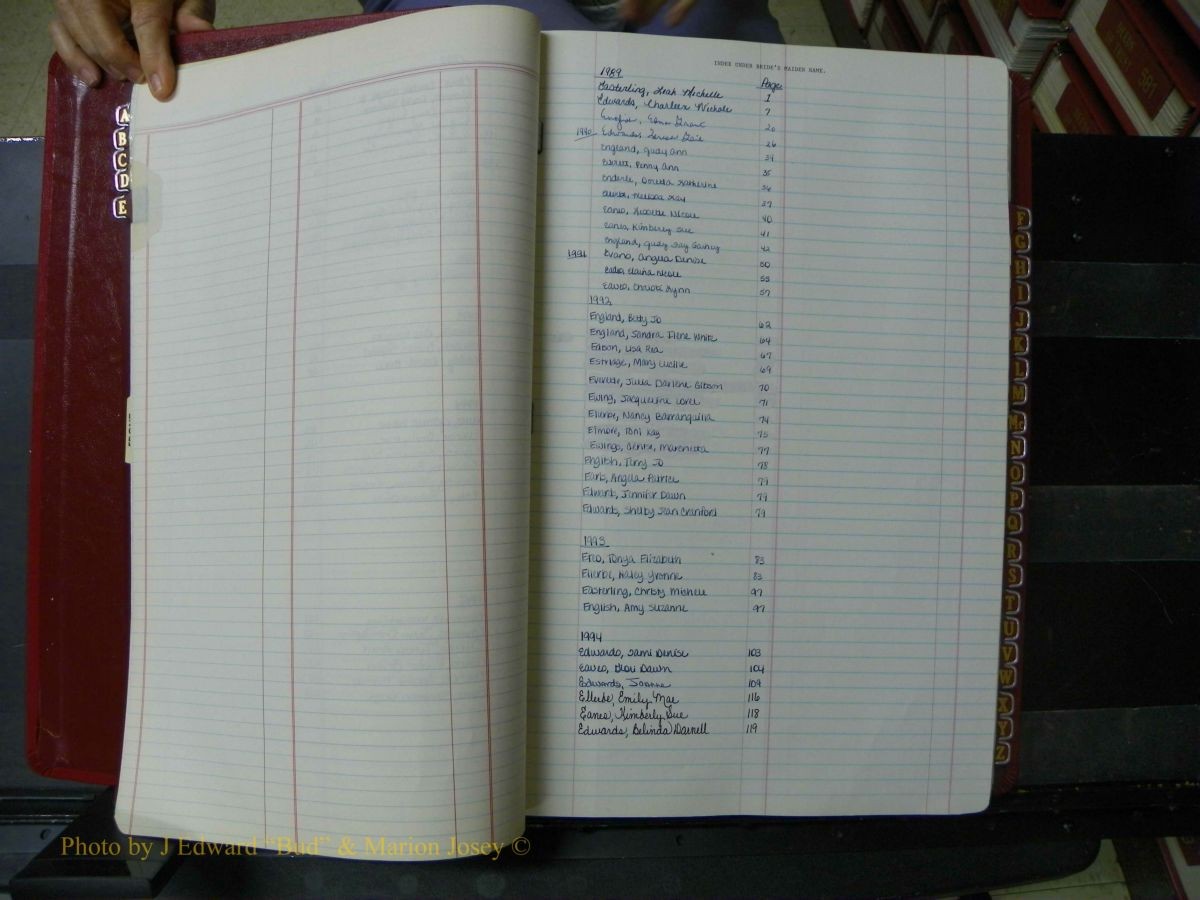 INDEX UNDER BRIDE'S MAIDEN NAME.
1989 Page
Easterling, Leah Michelle 1
Edwards, Charleen Nichole 7
20
1990 Edwards, Teresa Gail 26
England, Judy Ann 34
Penny Ann 35
Enderle, Doneda Katherine 36
Melissa Kay 37
Eanes, Nicole 40
Eanes, Kimberly Sue 41
England, Judy Gay Gainey 42
1991 Evans, Angela Denise 50
Elaina Nicole 55
Eaves, Christi Lynn 57
1992
England, Betty Jo 62
England, Sandra Irene White 64
Edison, Lisa Rea 67
Estridge, Mary Lucille 69
Everette, Julia Darlene Gibson 70
Ewing, Jacqueline Loret 71
Ellerbe, Nancy Barranquilla 74
Elmore, Toni Kay 75
Ewings, Denise, 77
English, Terry Jo 78
Earls, Angela Patrice 79
Edwards, Jennifer Dawn 79
Edwards, Shelby Jean Cranford 79
1993
Tonya Elizabeth 83
Ellerbe, Haley Yvonne 83
Easterling, Christy Michele 97
English, Amy Suzanne 97
1994
Edwards, Tami Denise 103
Eaves, Dawn 104
Edwards, Joanne 109
Ellerbe, Emily Mae 116
Eanes, Kimberly Sue 118
Edwards, Belinda Darnell 119
A
B
C
D
E
F
G
H
I
J
K
L
M
Mc
N
O
P
Q
R
S
T
U
V
W
X
Y
Z
591
Photo by J Edward "Bud" & Marion Josey ©